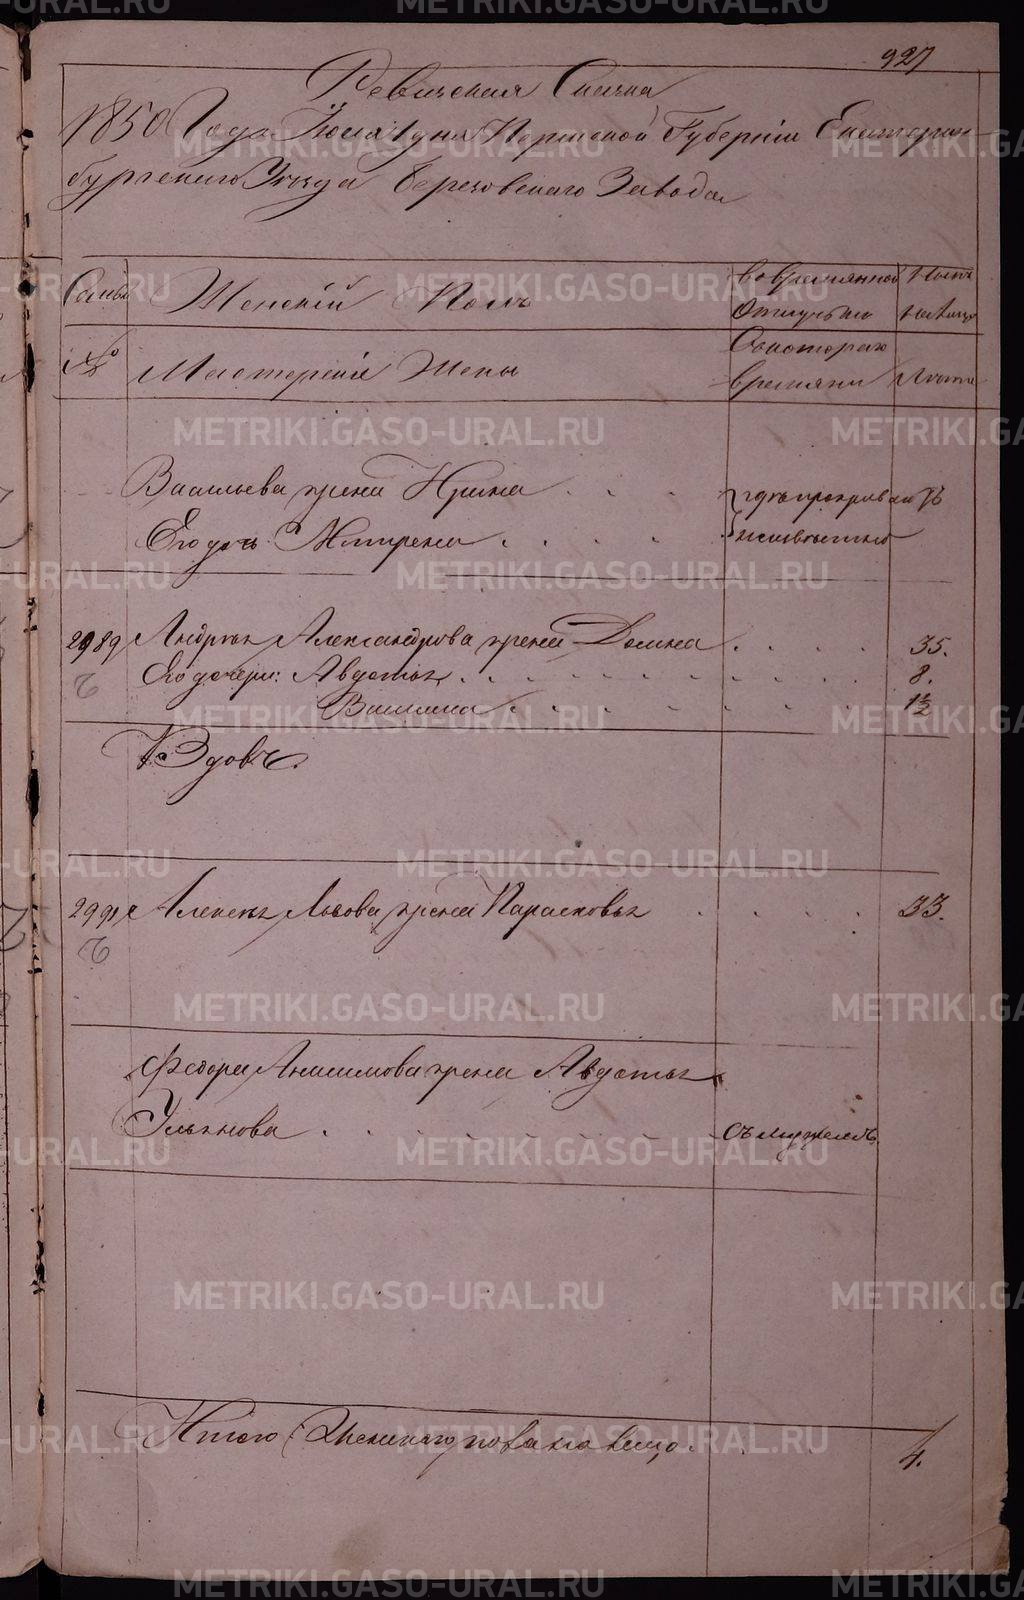 927
Ревизская Сказка
1850 Года Июля 1 дня Пермской Губерніи Екатерин-
бургскаго Уезда Березовскаго Завода
Семьи Женскій Полъ во временной Ныне
отлучке на лицо
№ Мастерскіе Жены С котораго
времяни Лета
Васильева жена Ирина . . . где проживаютъ
Его дочь Матрена . . . . . неизвестно
2989 Андрея Александрова жена Домна . . . . . 35.
Его дочери: Авдотья . . . . . . . . . . . 8.
Василиса . . . . . . . . 1½
Вдовъ.
2991 Алексея Львова жена Парасковья . . . . 33.
Федора Анисимова жена Авдотья
Ульянова . . . . . . . . съ мужемъ
Итого Женскаго пола на лицо . . . 4.
METRIKI.GASO-URAL.RU